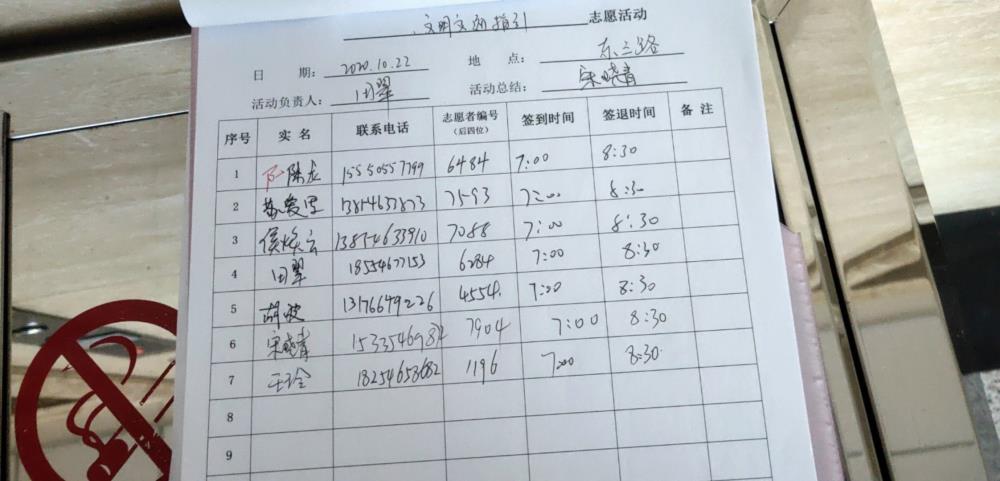 文明交通指引 志愿活动
日 期: 2020.10.22 地 点: 东三路
活动负责人: 田翠 活动总结: 宋晓青
序号 实名 联系电话 志愿者编号(后四位) 签到时间 签退时间 备注
1 陈龙 15550557799 6484 7:00 8:30
2 7593 7:00 8:30
3 侯焕云 13854633910 7088 7:00 8:30
4 田翠 18554677153 6284 7:00 8:30
5 胡波 13176679226 4554 7:00 8:30
6 宋晓青 7904 7:00 8:30
7 王玲 18254658682 1196 7:00 8:30
8
9